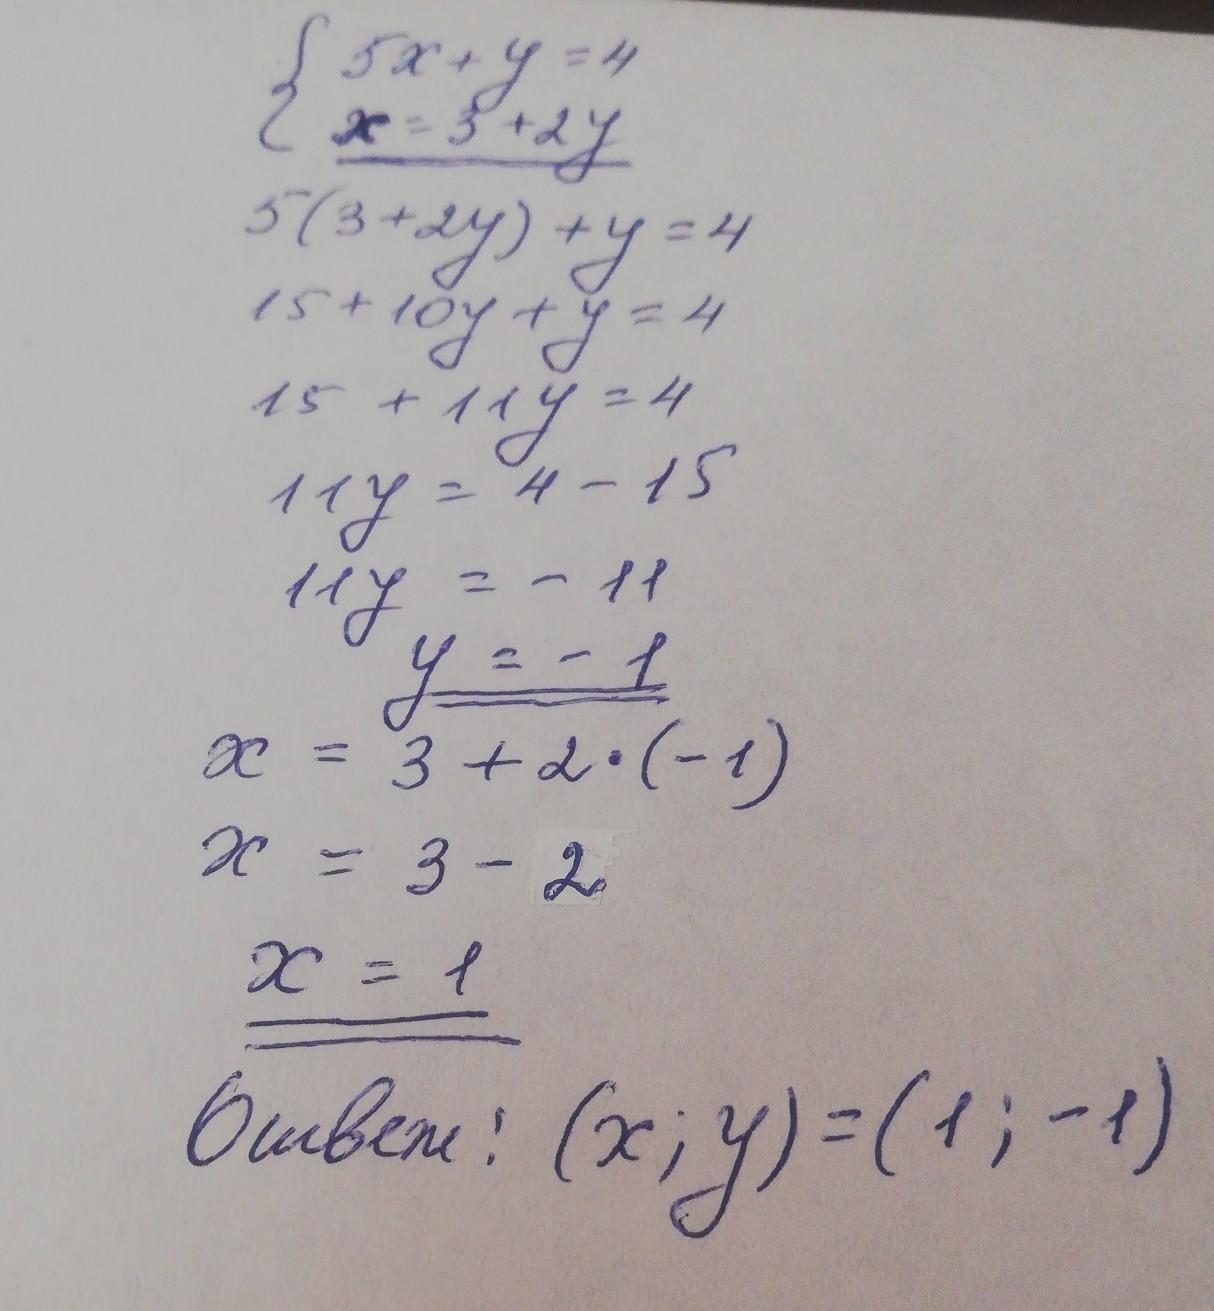 { 5x + y = 4
x = 3 + 2y
5(3 + 2y) + y = 4
15 + 10y + y = 4
15 + 11y = 4
11y = 4 - 15
11y = - 11
y = - 1
x = 3 + 2 · (- 1)
x = 3 - 2
x = 1
Ответ: (x; y) = (1; -1)